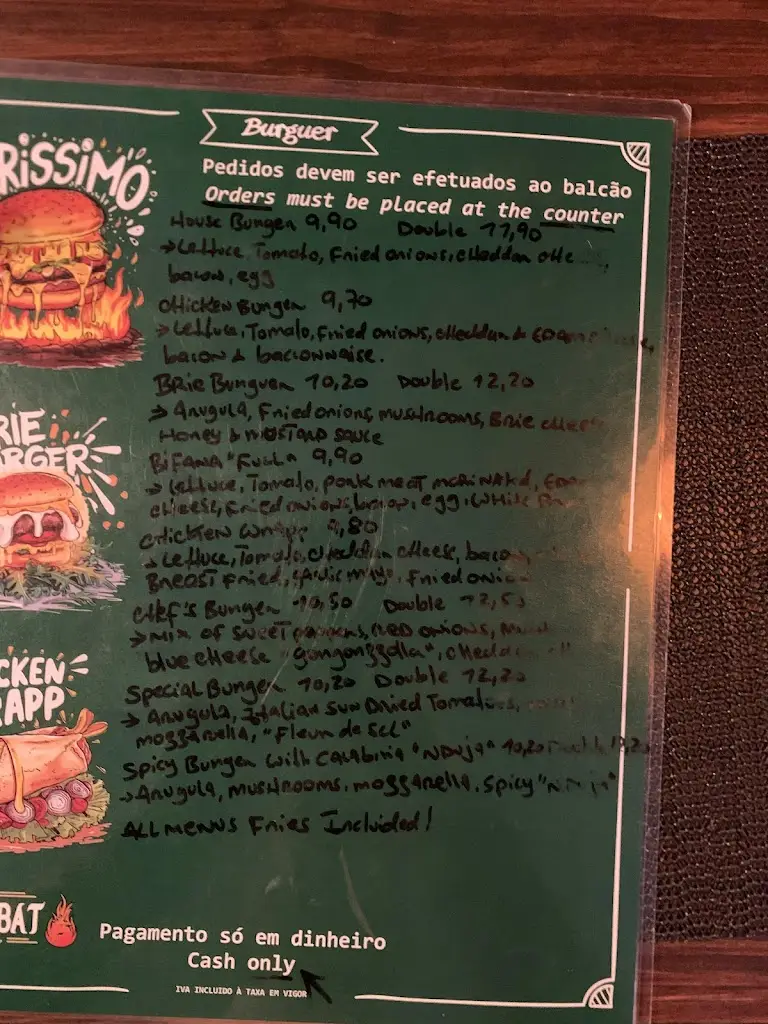 RISSIMO
Burguer
Pedidos devem ser efetuados ao balcão
Orders must be placed at the counter
House Burger 9,90 Double 11,90
→ Lettuce, Tomato, Fried onions, cheddar
bacon, egg
Chicken Burger 9,70
→ Lettuce, Tomato, Fried onions, cheddar &
bacon & baconnaise.
Brie Burguer 10,20 Double 12,20
→ Arugula, Fried onions, mushrooms, Brie cheese
Honey & mustard sauce
Bifana "Full" 9,90
→ Lettuce, Tomato, pork meat
cheese, Fried onions, bacon, egg,
Chicken Wrapp 9,80
→ Lettuce, Tomato, cheddar cheese,
Breast Fried, Garlic mayo, Fried
Chef's Burger 10,50 Double 12,50
→ Mix of sweet peppers, red onions,
blue cheese "gongonzolla", cheddar
Special Burger 10,20 Double 12,20
→ Arugula, Italian Sun Dried Tomatoes,
mozzarella, "Fleur de Sel"
Spicy Burger with Calabria "Nduja" 10,20 Double 12,20
→ Arugula, mushrooms, mozzarella, Spicy "Nduja"
All menus Fries Included!
RIE
RGER
CKEN
APP
BAT
Pagamento só em dinheiro
Cash only
IVA INCLUIDO À TAXA EM VIGOR